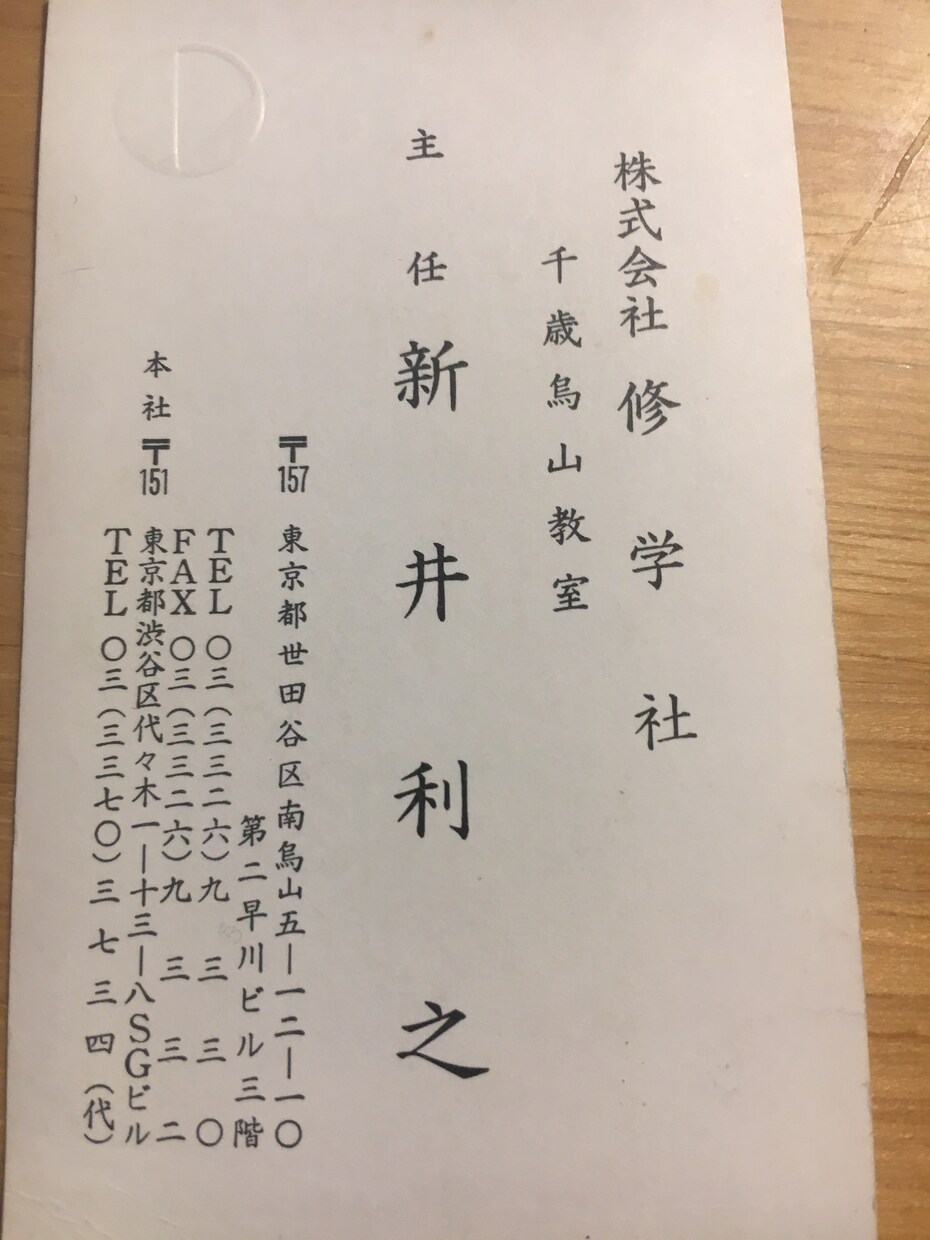 株式会社 修学社
千歳烏山教室
主任 新井利之
〒157 東京都世田谷区南烏山五―一二―一〇
第二早川ビル三階
TEL 〇三(三三二六)九三三〇
FAX 〇三(三三二六)九三三二
本社 〒151 東京都渋谷区代々木一―十三―八SGビル
TEL 〇三(三三七〇)三七三四(代)